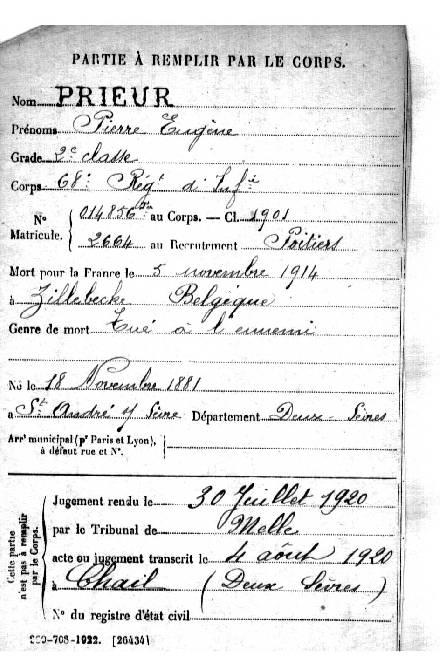 PARTIE À REMPLIR PAR LE CORPS.
Nom PRIEUR
Prénoms Pierre Eugène
Grade 2e classe
Corps 68e Régt d'Infie
No Matricule. { 014856 au Corps. — Cl. 1901
2664 au Recrutement Poitiers
Mort pour la France le 5 novembre 1914
à Zillebecke Belgique
Genre de mort Tué à l'ennemi
Né le 18 Novembre 1881
à St André s/ Sèvre Département Deux-Sèvres
Arrt municipal (pr Paris et Lyon),
à défaut rue et No.
Cette partie n'est pas à remplir par le Corps.
Jugement rendu le 30 Juillet 1920
par le Tribunal de Melle
acte ou jugement transcrit le 4 août 1920
à Chail (Deux Sèvres)
No du registre d'état civil
-708-1922. [26434]